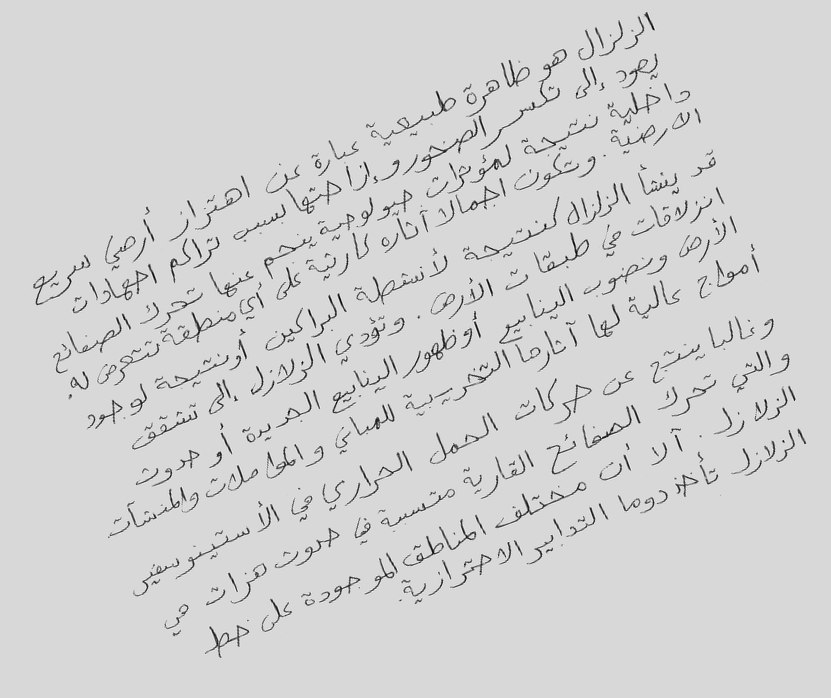 الزلزال هو ظاهرة طبيعية عبارة عن اهتزاز أرضي سريع
يعود إلى تكسر الصخور وإزاحتها بسبب تراكم اجهادات
داخلية نتيجة لمؤثرات جيولوجية ينجم عنها تحرك الصفائح
الارضية. وتكون اجمالا آثاره كارثية على أي منطقة تتعرض له.
قد ينشأ الزلزال كنتيجة لأنشطة البراكين أو نتيجة لوجود
انزلاقات في طبقات الأرض. وتؤدي الزلازل إلى تشقق
الأرض ونضوب الينابيع أو ظهور الينابيع الجديدة أو حدوث
أمواج عالية لها آثارها التخريبية للمباني والمواصلات والمنشآت
وغالبا ينتج عن حركات الحمل الحراري في الأستينوسفير
والتي تحرك الصفائح القارية متسببة في حدوث هزات هي
الزلازل. آلا أن مختلف المناطق الموجودة على خط
الزلازل تأخذ دوما التدابير الاحترازية.